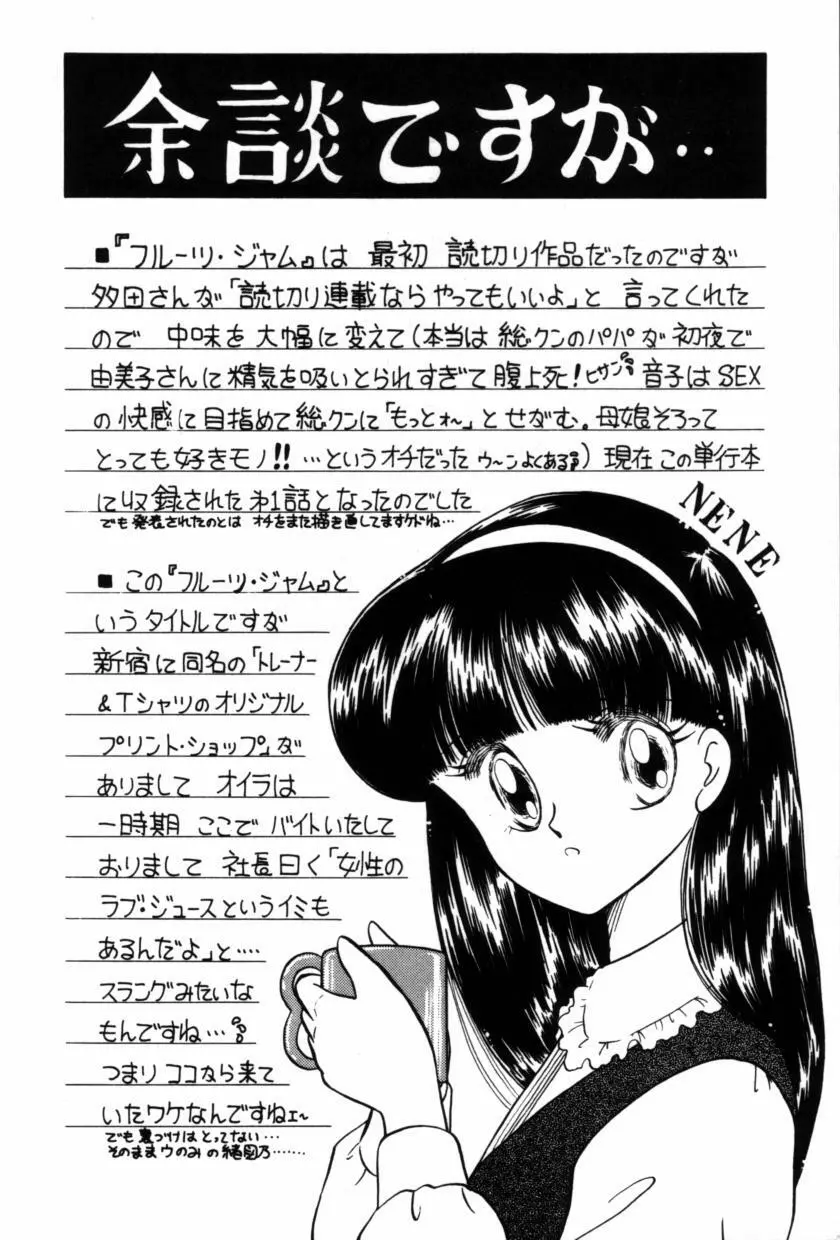 余談ですが‥
■『フルーツ・ジャム』は 最初 読切り作品だったのですが
多田さんが「読切り連載ならやってもいいよ」と 言ってくれた
ので 中味を大幅に変えて(本当は 総クンのパパが 初夜で
由美子さんに精気を吸いとられすぎて腹上死!ヒサン 音子はSEX
の快感に目指めて総クンに「もっとォ〜」とせがむ。母娘そろって
とっても好きモノ!! …というオチだった ウ〜ンよくある)現在この単行本
に収録された 第1話となったのでした
でも 発表されたのとは オチをまた描き直してますケドね…
NENE
■ この『フルーツ・ジャム』と
いうタイトルですが
新宿に同名の「トレーナー
&Tシャツのオリジナル
プリント・ショップ」が
ありまして オイラは
一時期 ここで バイトいたして
おりまして 社長曰く「女性の
ラブ・ジュースというイミも
あるんだよ」と‥‥
スラングみたいな
もんですね…
つまり ココから来て
いたワケなんですねェ〜
でも 裏づけはとってない…
そのままウのみの緒図乃‥‥‥